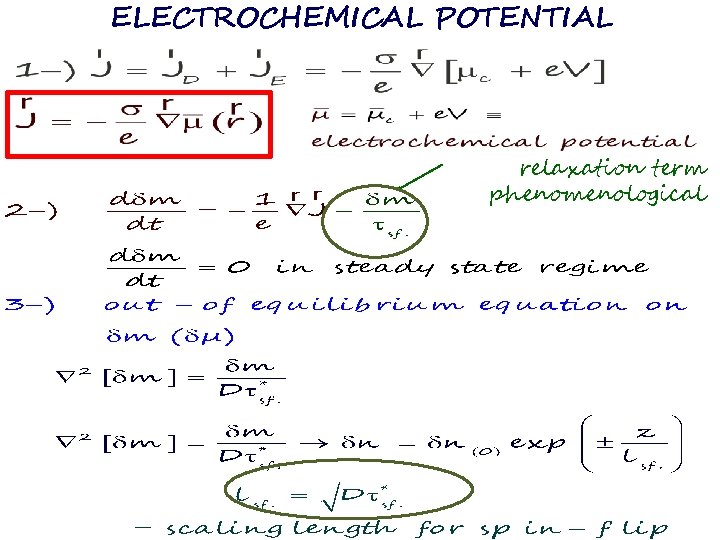 ELECTROCHEMICAL POTENTIAL
1–) J^r = J^r_D + J^r_E = − σ/e ∇^r [μ_c + eV]
J^r = − σ/e ∇^r μ̅ (r^r)
μ̅ = μ̅_c + eV ≡
electrochemical potential
relaxation term
phenomenological
2–) dδm/dt − − 1/e ∇^r J^r − δm/τ_sf.
dδm/dt = 0 in steady state regime
3–) out – of equilibrium equation on
δm (δμ)
∇² [δm] = δm/Dτ*_sf.
∇² [δm] − δm/Dτ*_sf. → δn − δn_(0) exp (± z/l_sf.)
l_sf. = √Dτ*_sf.
– scaling length for sp in – f lip